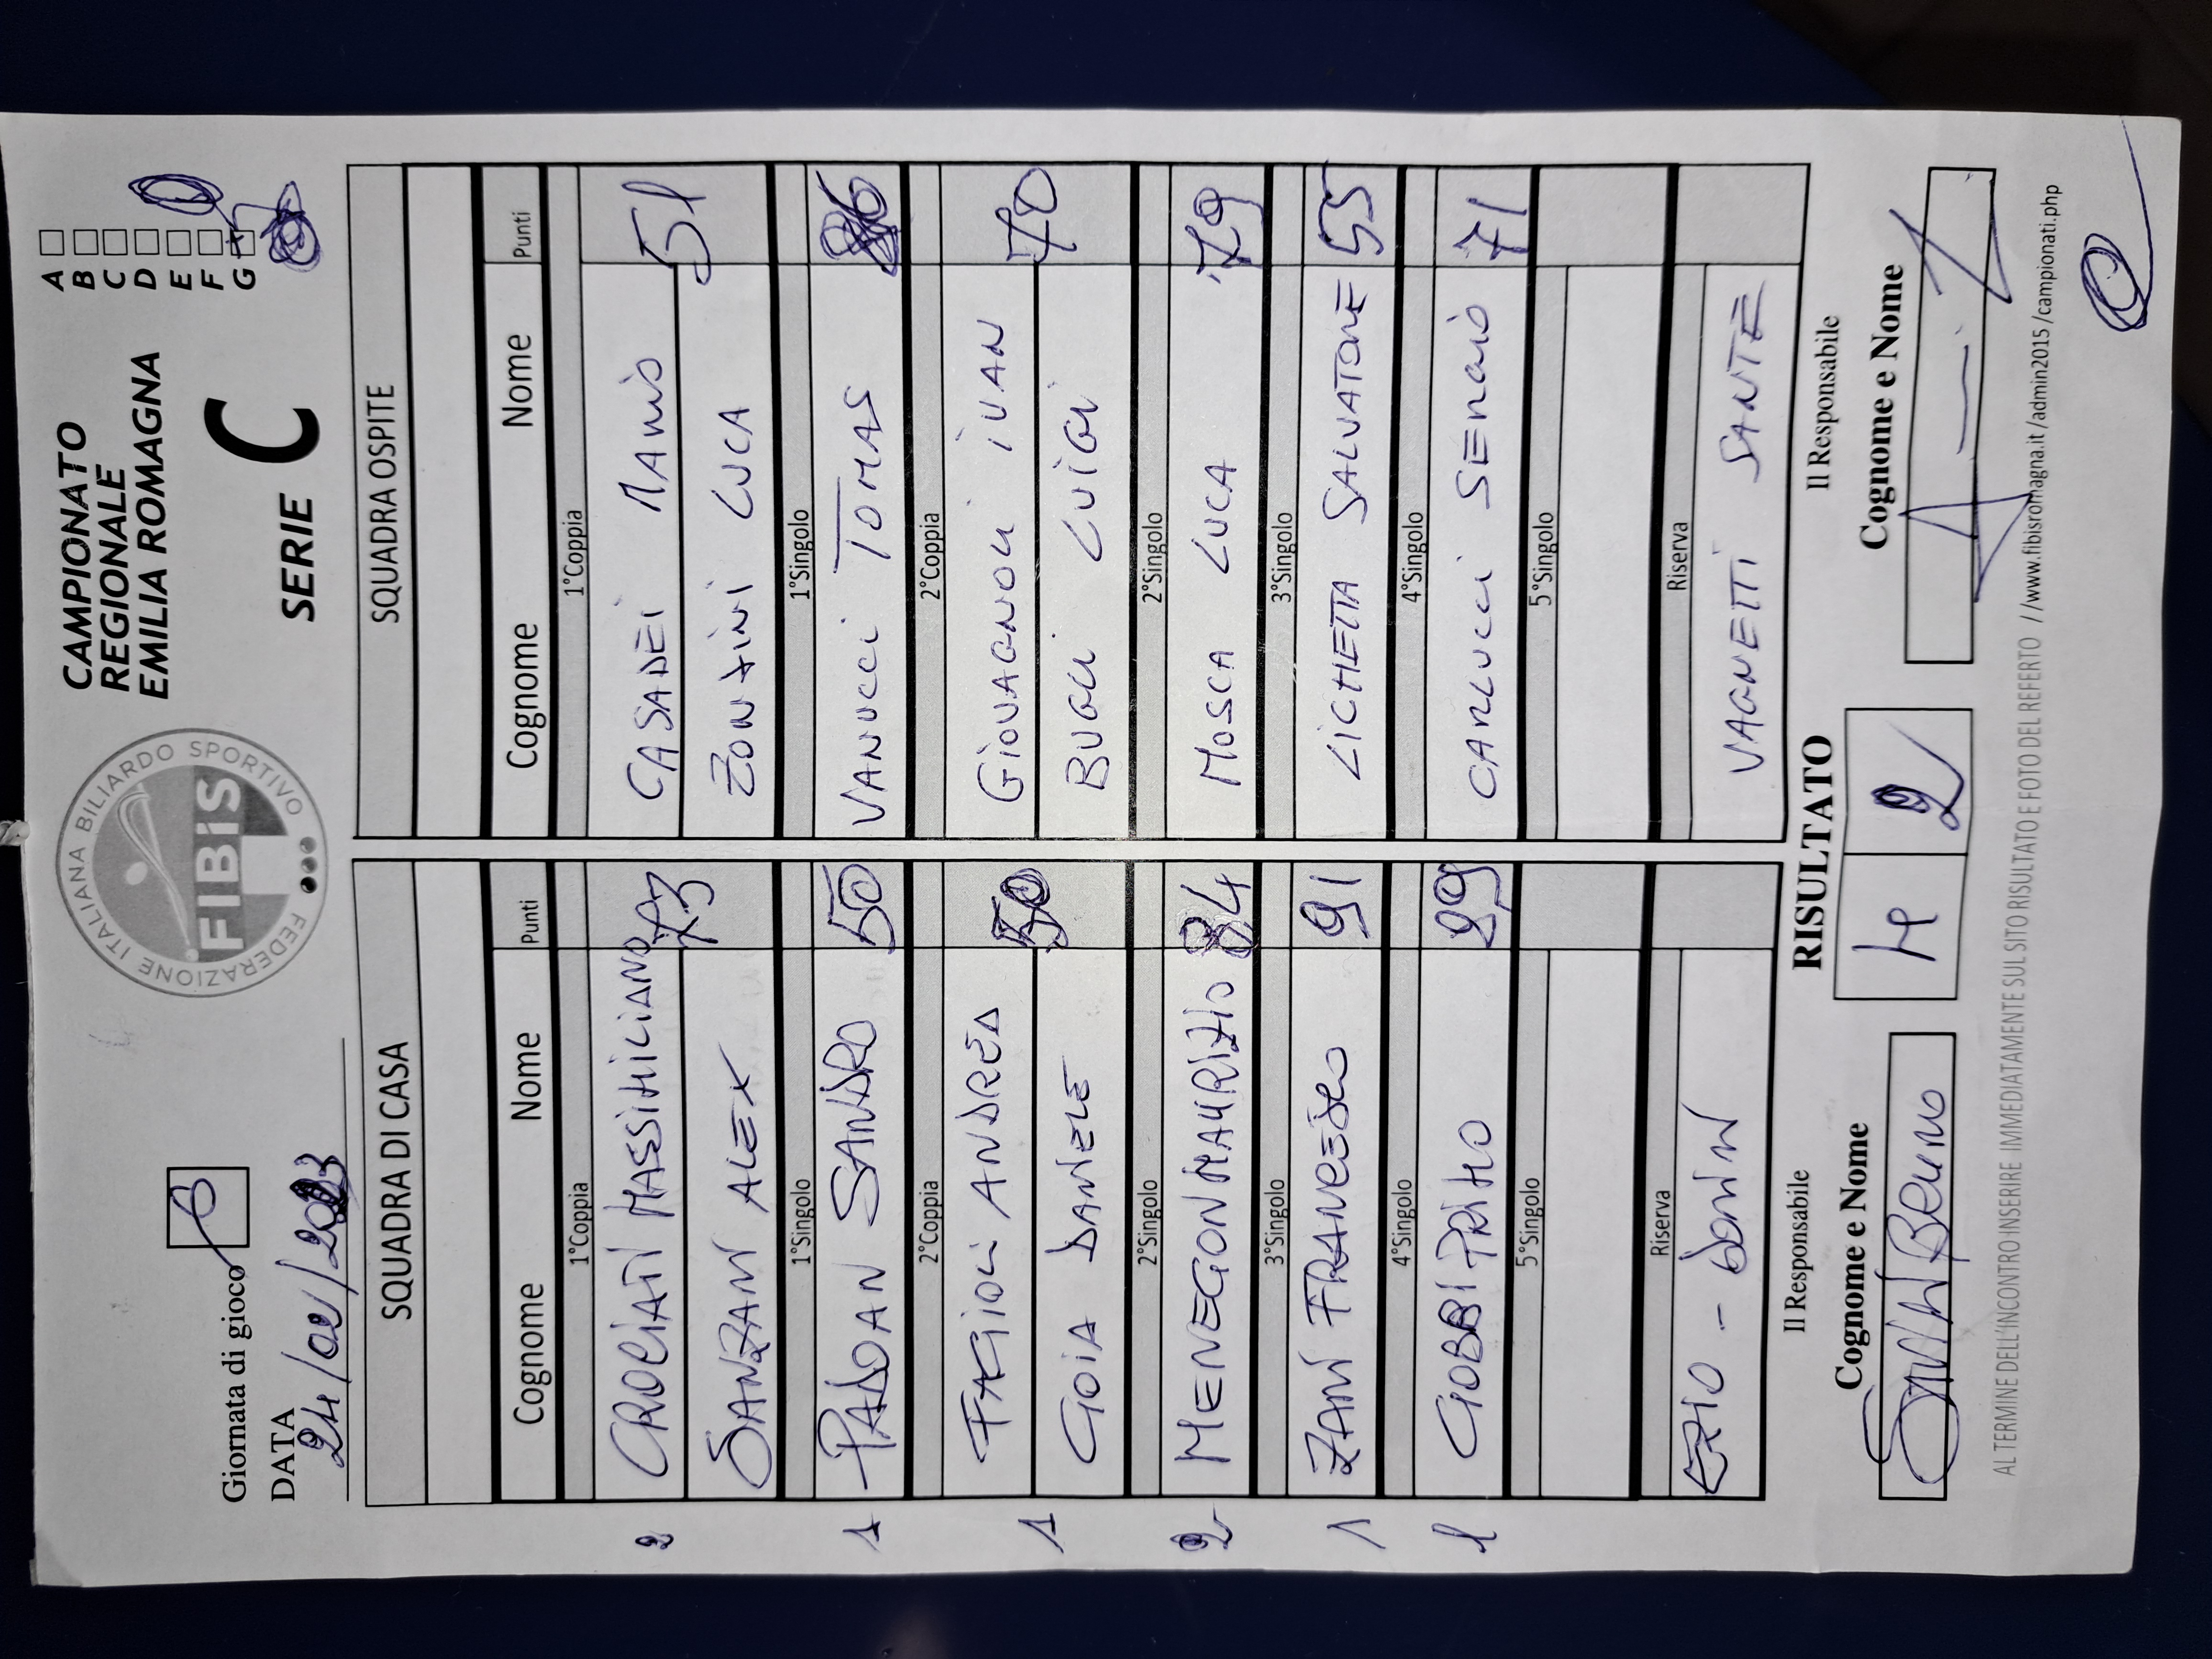 Giornata di gioco
DATA
24/02/2023
FEDERAZIONE ITALIANA BILIARDO SPORTIVO
FIBiS
CAMPIONATO
REGIONALE
EMILIA ROMAGNA
SERIE C
A
B
C
D
E
F
G
SQUADRA DI CASA SQUADRA OSPITE
Cognome Nome Punti Cognome Nome Punti
1°Coppia 1°Coppia
2 CROCIATI MASSIMILIANO 73 CASADEI MARIO 51
SANZANI ALEX ZONZINI LUCA
1°Singolo 1°Singolo
1 PADOAN SANDRO 50 VANUCCI TOMAS
2°Coppia 2°Coppia
1 FAGIOLI ANDREA 50 GIOVAGNOLI IVAN 70
GOIA DANIELE BUGLI LUIGI
2°Singolo 2°Singolo
2 MENEGON MAURIZIO 84 MOSCA LUCA 79
3°Singolo 3°Singolo
1 ZANI FRANCESCO 91 LICHETTA SALVATORE 55
4°Singolo 4°Singolo
1 GIOBBI PRIMO 29 CARLUCCI SERGIO 71
5°Singolo 5°Singolo
Riserva Riserva
EZIO - DONINI VAGNETTI SANTE
Il Responsabile RISULTATO Il Responsabile
Cognome e Nome 4 2 Cognome e Nome
AL TERMINE DELL'INCONTRO INSERIRE IMMEDIATAMENTE SUL SITO RISULTATO E FOTO DEL REFERTO //www.fibisromagna.it/admin2015/campionati.php